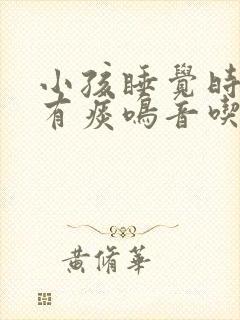 小孩睡覺時
有痰鳴音喫
黃脩華